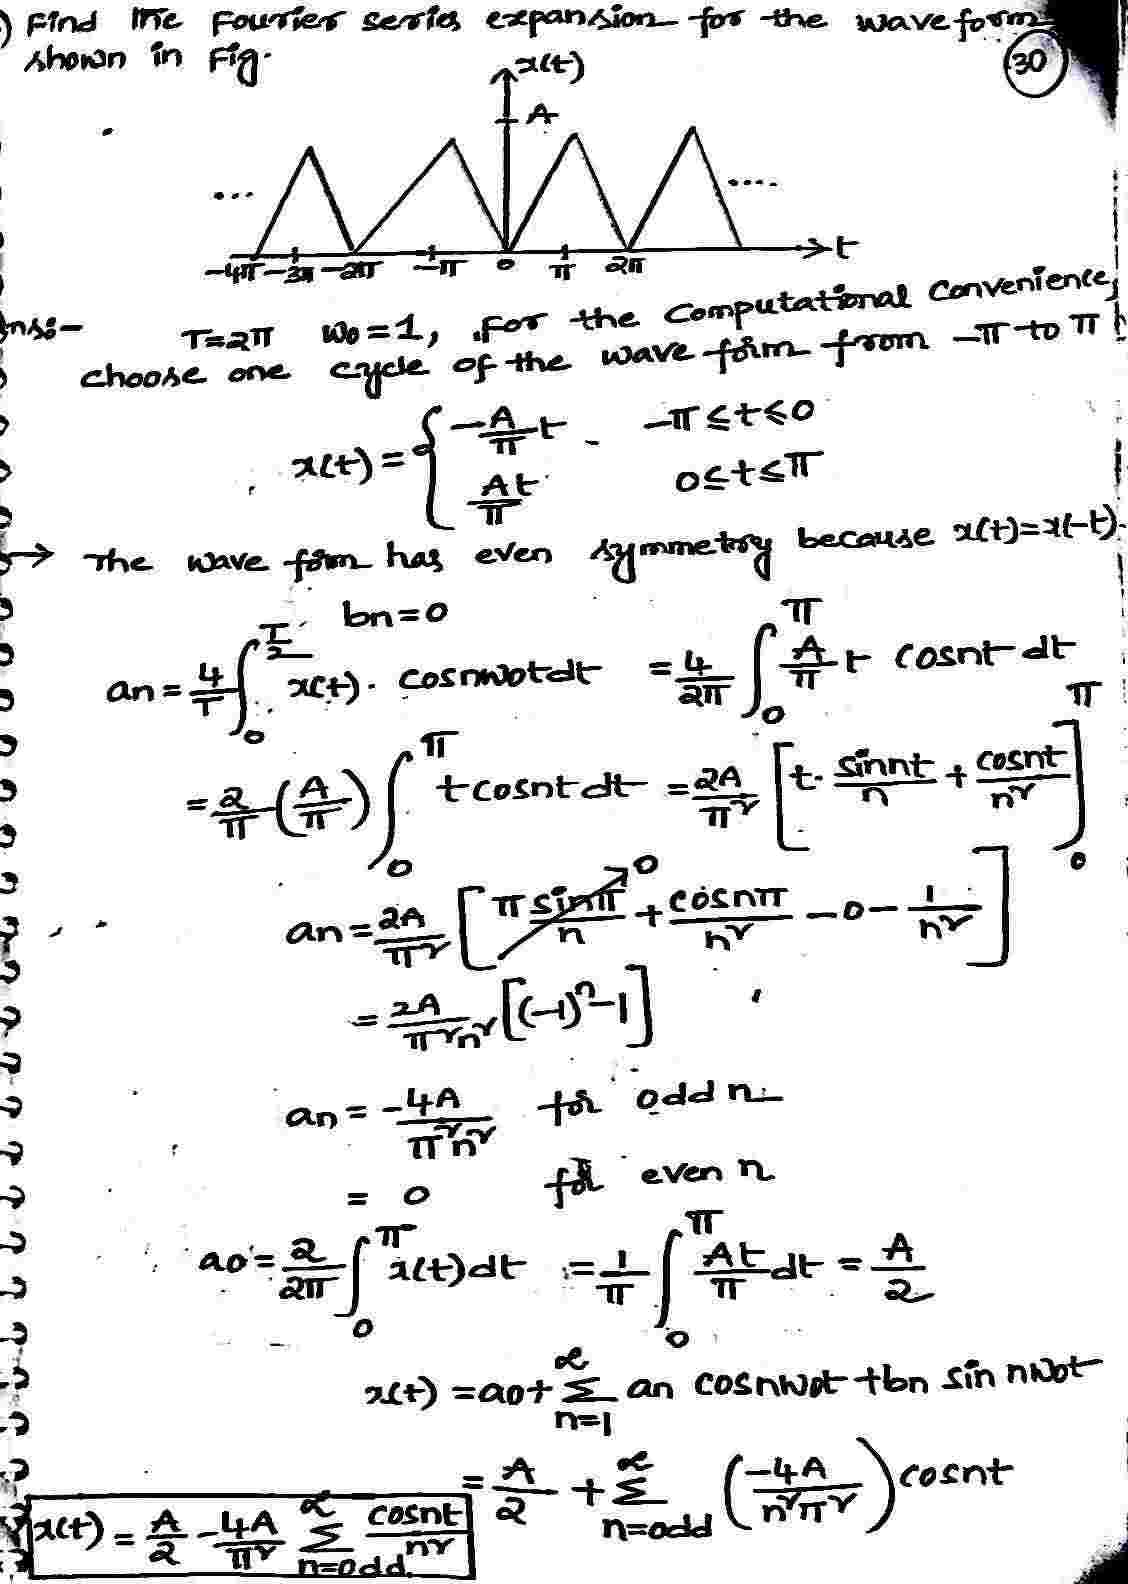 ) Find the Fourier series expansion for the wave form
shown in Fig.
30
x(t)
A
... ....
t
-4π -3π -2π -π 0 π 2π
ns:- T=2π ω0=1, For the computational convenience,
choose one cycle of the wave form from -π to π
x(t) = { -A/π t -π ≤ t ≤ 0
At/π 0 ≤ t ≤ π
→ The wave form has even symmetry because x(t)=x(-t).
bn=0
an = 4/T ∫_0^{T/2} x(t). cosnω0t dt = 4/2π ∫_0^π A/π t cosnt dt
= 2/π (A/π) ∫_0^π t cosnt dt = 2A/π² [t. sinnt/n + cosnt/n²]_0^π
an = 2A/π² [π sinπ/n → 0 + cosnπ/n² - 0 - 1/n²]
= 2A/π²n² [(-1)^n - 1]
an = -4A/π²n² for odd n.
= 0 for even n
a0 = 2/2π ∫_0^π x(t) dt = 1/π ∫_0^π At/π dt = A/2
x(t) = a0 + Σ_{n=1}^∝ an cosnω0t + bn sin nω0t
= A/2 + Σ_{n=odd}^∝ (-4A/n²π²) cosnt
x(t) = A/2 - 4A/π² Σ_{n=odd.}^∝ cosnt/n²